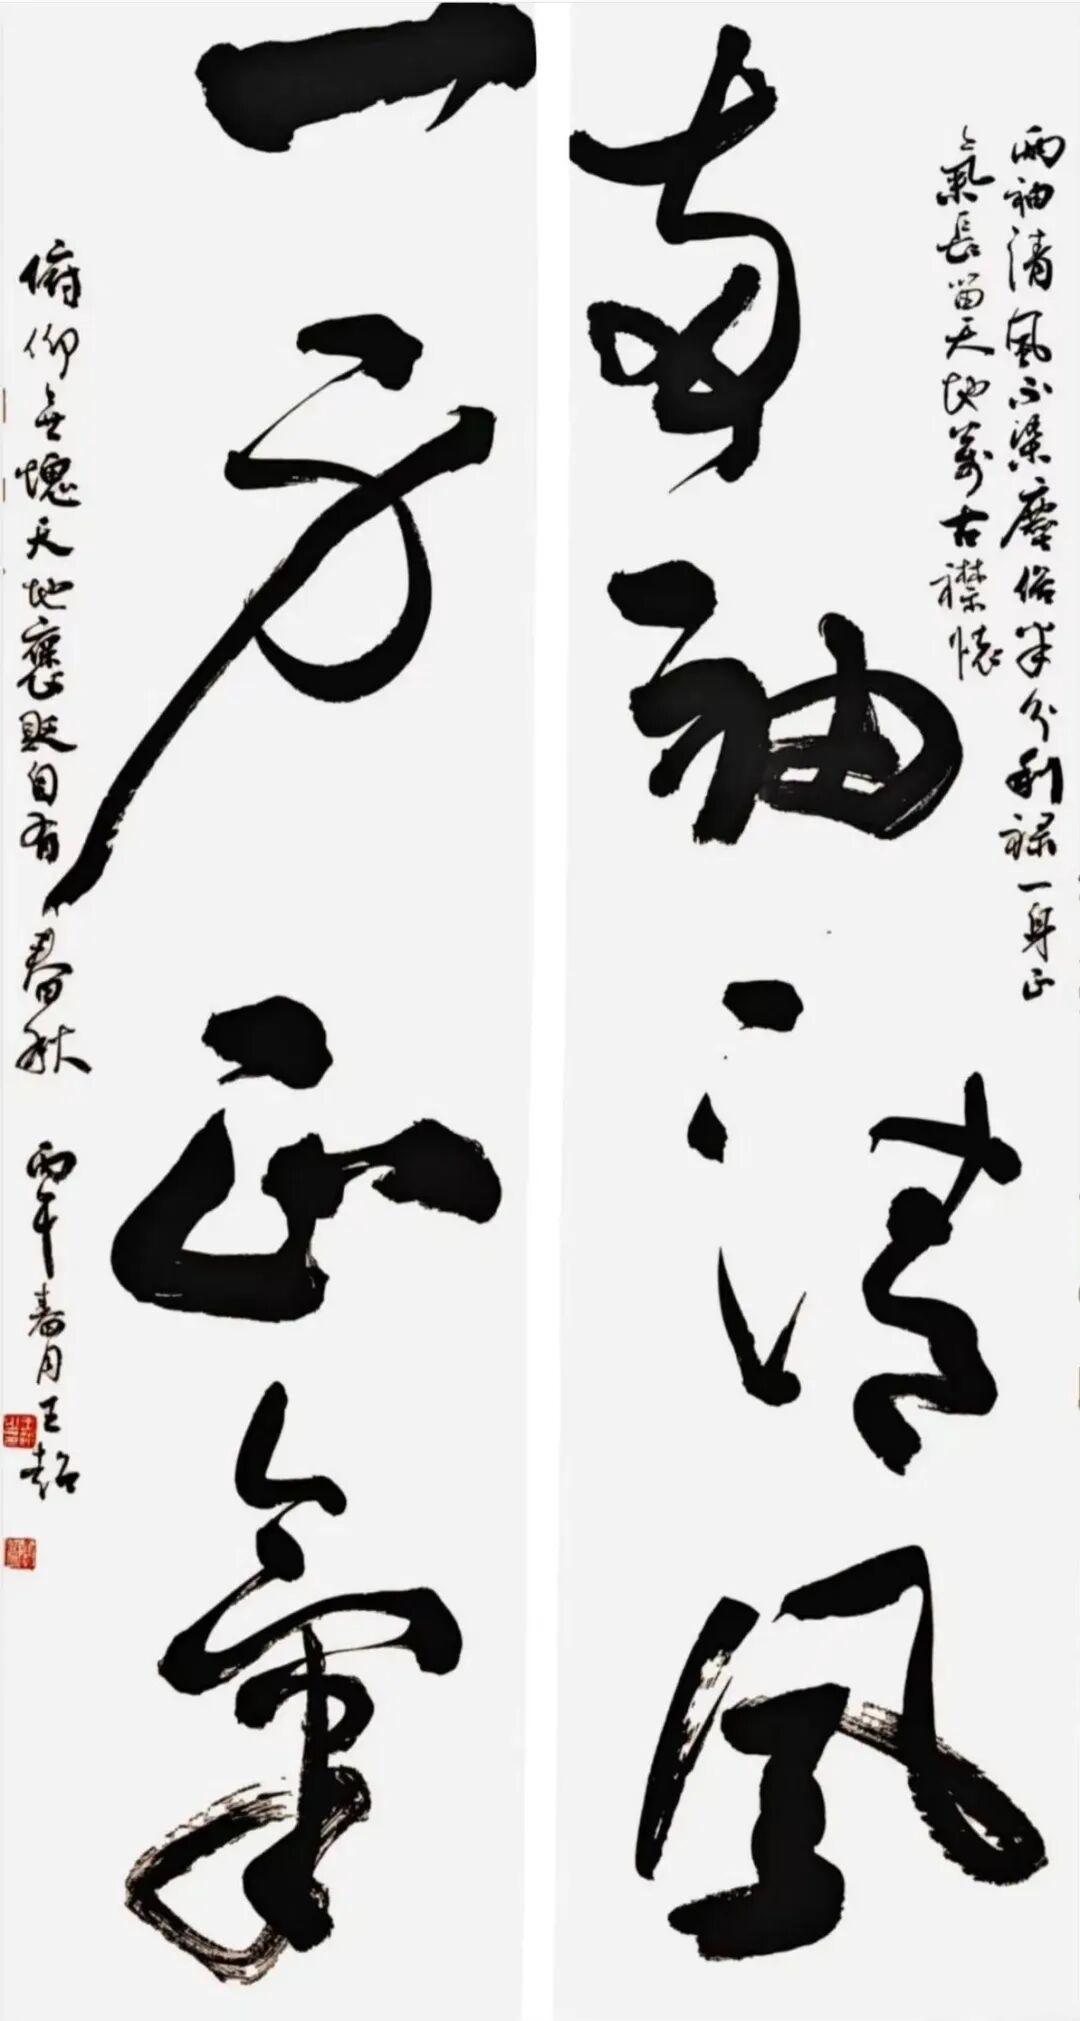 兩袖清風不染塵俗半分利祿一身正
氣長留天地萬古襟懷
兩袖清風
一方正氣
俯仰無愧天地褒貶自有春秋 丙午春月王超